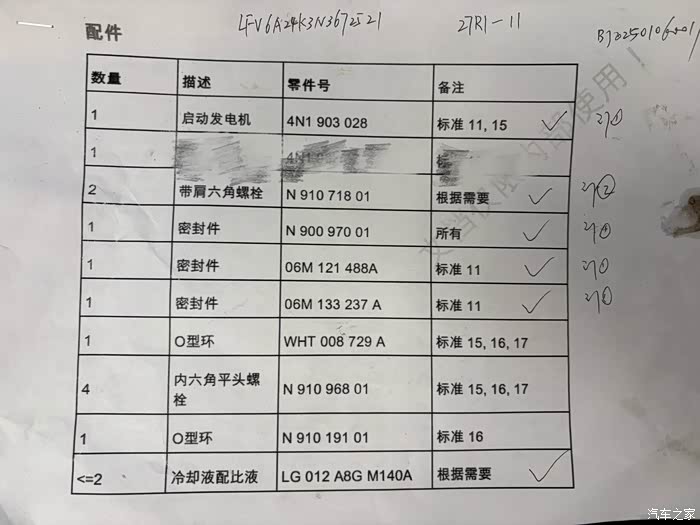 LFV6A24K3N3672521 27R1-11
配件
数量 描述 零件号 备注
1 启动发电机 4N1 903 028 标准 11, 15
1 4N1
2 带肩六角螺栓 N 910 718 01 根据需要
1 密封件 N 900 970 01 所有
1 密封件 06M 121 488A 标准 11
1 密封件 06M 133 237 A 标准 11
1 O型环 WHT 008 729 A 标准 15, 16, 17
4 内六角平头螺 N 910 968 01 标准 15, 16, 17
栓
1 O型环 N 910 191 01 标准 16
<=2 冷却液配比液 LG 012 A8G M140A 根据需要
内部使用！
汽车之家